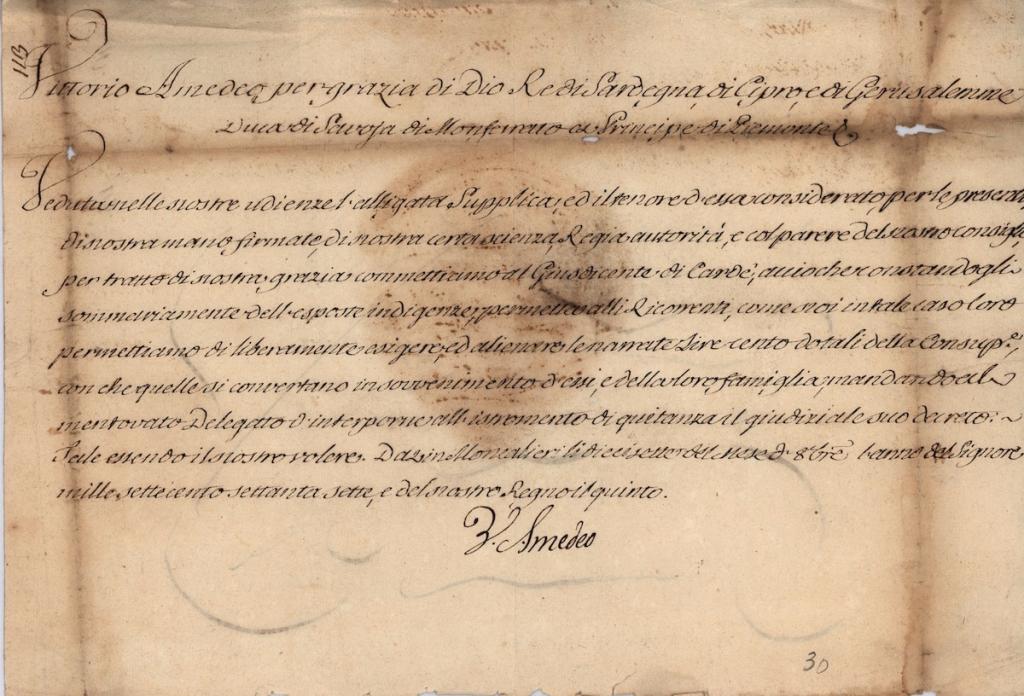 113
Vittorio Amedeo per grazia di Dio Re di Sardegna, di Cipro, e di Gerusalemme
Duca di Savoja di Monferrato &c Principe di Piemonte &
Veduta nelle nostre udienze l'alligata Supplica, ed il tenore d'essa considerato per le presenti
di nostra mano firmate, di nostra certa scienza Regia autorità, e col parere del nostro consiglio
per tratto di nostra grazia commettiamo al Giusdicente di Cardè, acciochè constandogli
sommariamente dell'esposte indigenze, permetta alli Ricorrenti, come noi in tale caso loro
permettiamo di liberamente esigere, ed alienare le narrate Lire cento dotali della
con che quelle si convertano in sovvenimento d'essi, e della loro famiglia, mandando al
mentovato Delegato d'interporre all'istromento di quitanza il giudiziale suo decreto:
Tale essendo il nostro volere. Dat. in Moncalieri li diecisette del mese d'8bre l'anno del Signore
mille settecento settanta sette, e del nostro Regno il quinto.
V. Amedeo
30